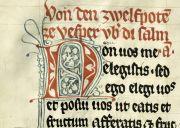 Von den zwelfpote
ze vesper vb di salm
Non uos me a
elegistis. sed
ego elegi uos
et posui uos ut eatis et
fructum afferatis & fruc